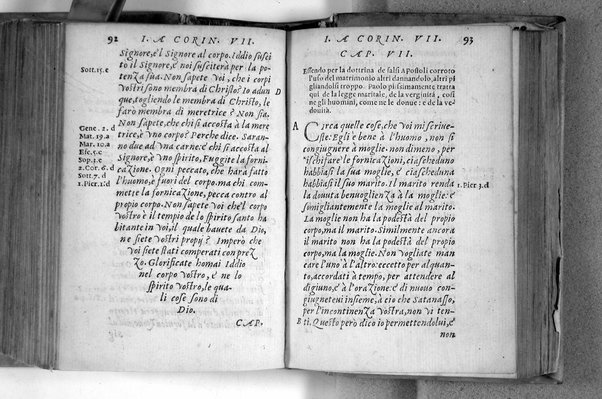 92 I. A CORIN. VII.
Signore, e'l Signore al corpo. Iddio suscitò
il Signore, e noi susciterà per la potenza
sua. Non sapete voi, che i corpi
vostri sono membra di Christo? Io adun D
que, togliendo le membra di Christo, le
farò membra di meretrice? Non sia.
Non sapete, che chi s'accosta à la meretrice,
è vno corpo? Perche dice. Saranno
due ad vna carne: e chi s'accosta al
Signore, è vno spirito. Fuggite la fornicazione.
Ogni peccato, che harà fatto
l'huomo, e fuori del corpo, ma chi commette
la fornicazione, pecca contro al
proprio corpo. Non sapete voi che'l corpo
vostro è il tempio de lo spirito santo ha
bitante in voi, il quale hauete da Dio,
ne siete vostri propij? Imperò che
voi siete stati comperati con prez
zo. Glorificate homai Iddio
nel corpo vostro, e ne lo
spirito vostro, le qua
li cose sono di
Dio.
CAP.
Sott. 15. e
Gene. 2. d
Mat. 19. a
Mar. 10. a
Efe. 5. e
Sop. 3. c
2. Cor. 6. d
Sott. 7. d
1. Pier. 1. d
I. A CORIN. VII. 93
CAP. VII.
Essendo per la dottrina de falsi Apostoli corroto
l'uso del matrimonio altri dannandolo, altri pi
gliandosi troppo. Paolo pissimamente tratta
qui de la legge maritale, de la verginità, così
ne gli huomini, come ne le donne: e de la ve-
douità.
A Circa quelle cose, che voi mi scriueste:
Egli è bene à l'huomo, non si
congiugnere à moglie. non dimeno, per
ischifare le fornicazioni, ciascheduno
habbiasi la sua moglie, e ciascheduna
habbiasi il suo marito. Il marito renda
la douuta beniuoglienza à la moglie: e
simigliantemente la moglie al marito.
La moglie non ha la podestà del proprio
corpo, ma il marito. Similmente ancora
il marito non ha la podestà del proprio
corpo, ma la moglie. Non vogliate man
care l'uno à l'altro: eccetto per alquanto,
accordati à tempo, per attendere al
digiuno, e à l'orazione: e di nuouo congiugneteui
insieme, à cio che Satanasso,
per l'incontinenza vostra, non vi ten-
B ti. Questo però dico io permettendolui, e
non
1. Pier 3. d